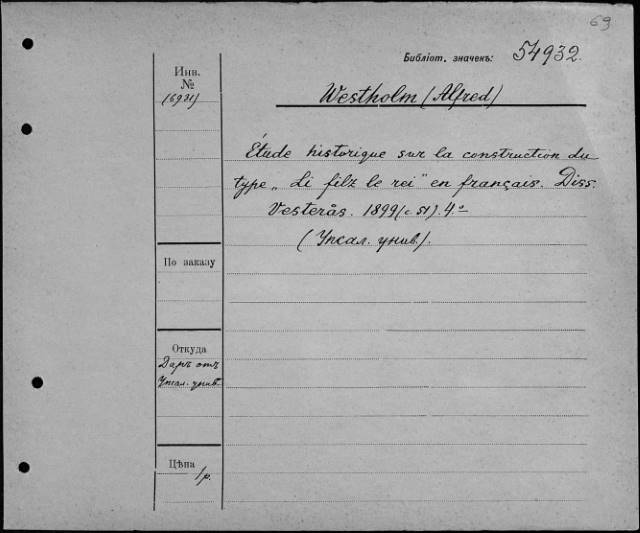 69
Библіот. значекъ: 54932.
Инв.
№
(6931)
Westholm (Alfred)
Étude historique sur la construction du
type „Li filz le rei" en français. Diss.
Vesterås. 1899 (с. 51). 4.º
(Упсал. унив.).
По заказу
Откуда
Даръ отъ
Упсал. унив.
Цѣна
1 р.